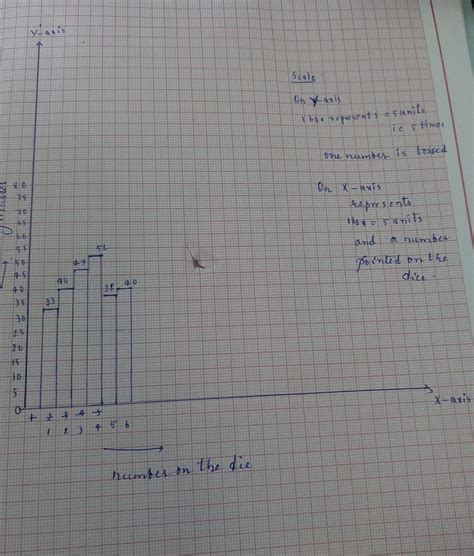 Y-axis
Scale
On Y-axis
1 box represents = 5 units
i.e 5 times
one number is tossed
On X-axis
represents
1 box = 5 units
and a number
pointed on the
dice.
80
75
70
65
60
55
50
45
40
35
30
25
20
15
10
5
0
33
40
47
38
40
X-axis
1 2 3 4 5 6
number on the die